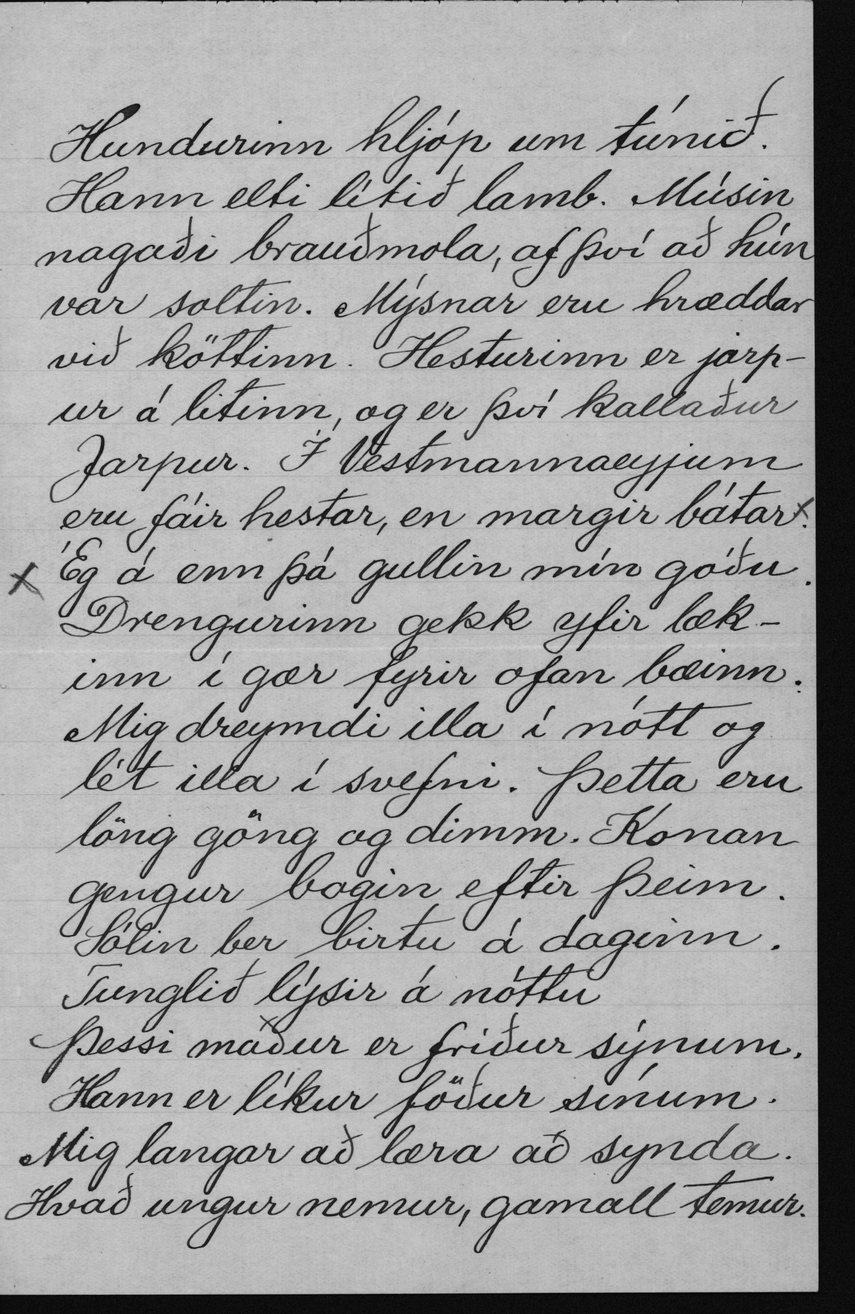 Hundurinn hljóp um túnið.
Hann elti lítið lamb. Músin
nagaði brauðmola, af því að hún
var soltin. Mýsnar eru hræddar
við köttinn. Hesturinn er jarp-
ur á litinn, og er því kallaður
Jarpur. Í Vestmannaeyjum
eru fáir hestar, en margir bátar.
Ég á enn þá gullin mín góðu.
Drengurinn gekk yfir læk-
inn í gær fyrir ofan bæinn.
Mig dreymdi illa í nótt og
lét illa í svefni. Þetta eru
löng göng og dimm. Konan
gengur bogin eftir þeim.
Sólin ber birtu á daginn.
Tunglið lýsir á nóttu
Þessi maður er fríður sýnum.
Hann er líkur föður sínum.
Mig langar að læra að synda.
Hvað ungur nemur, gamall temur.